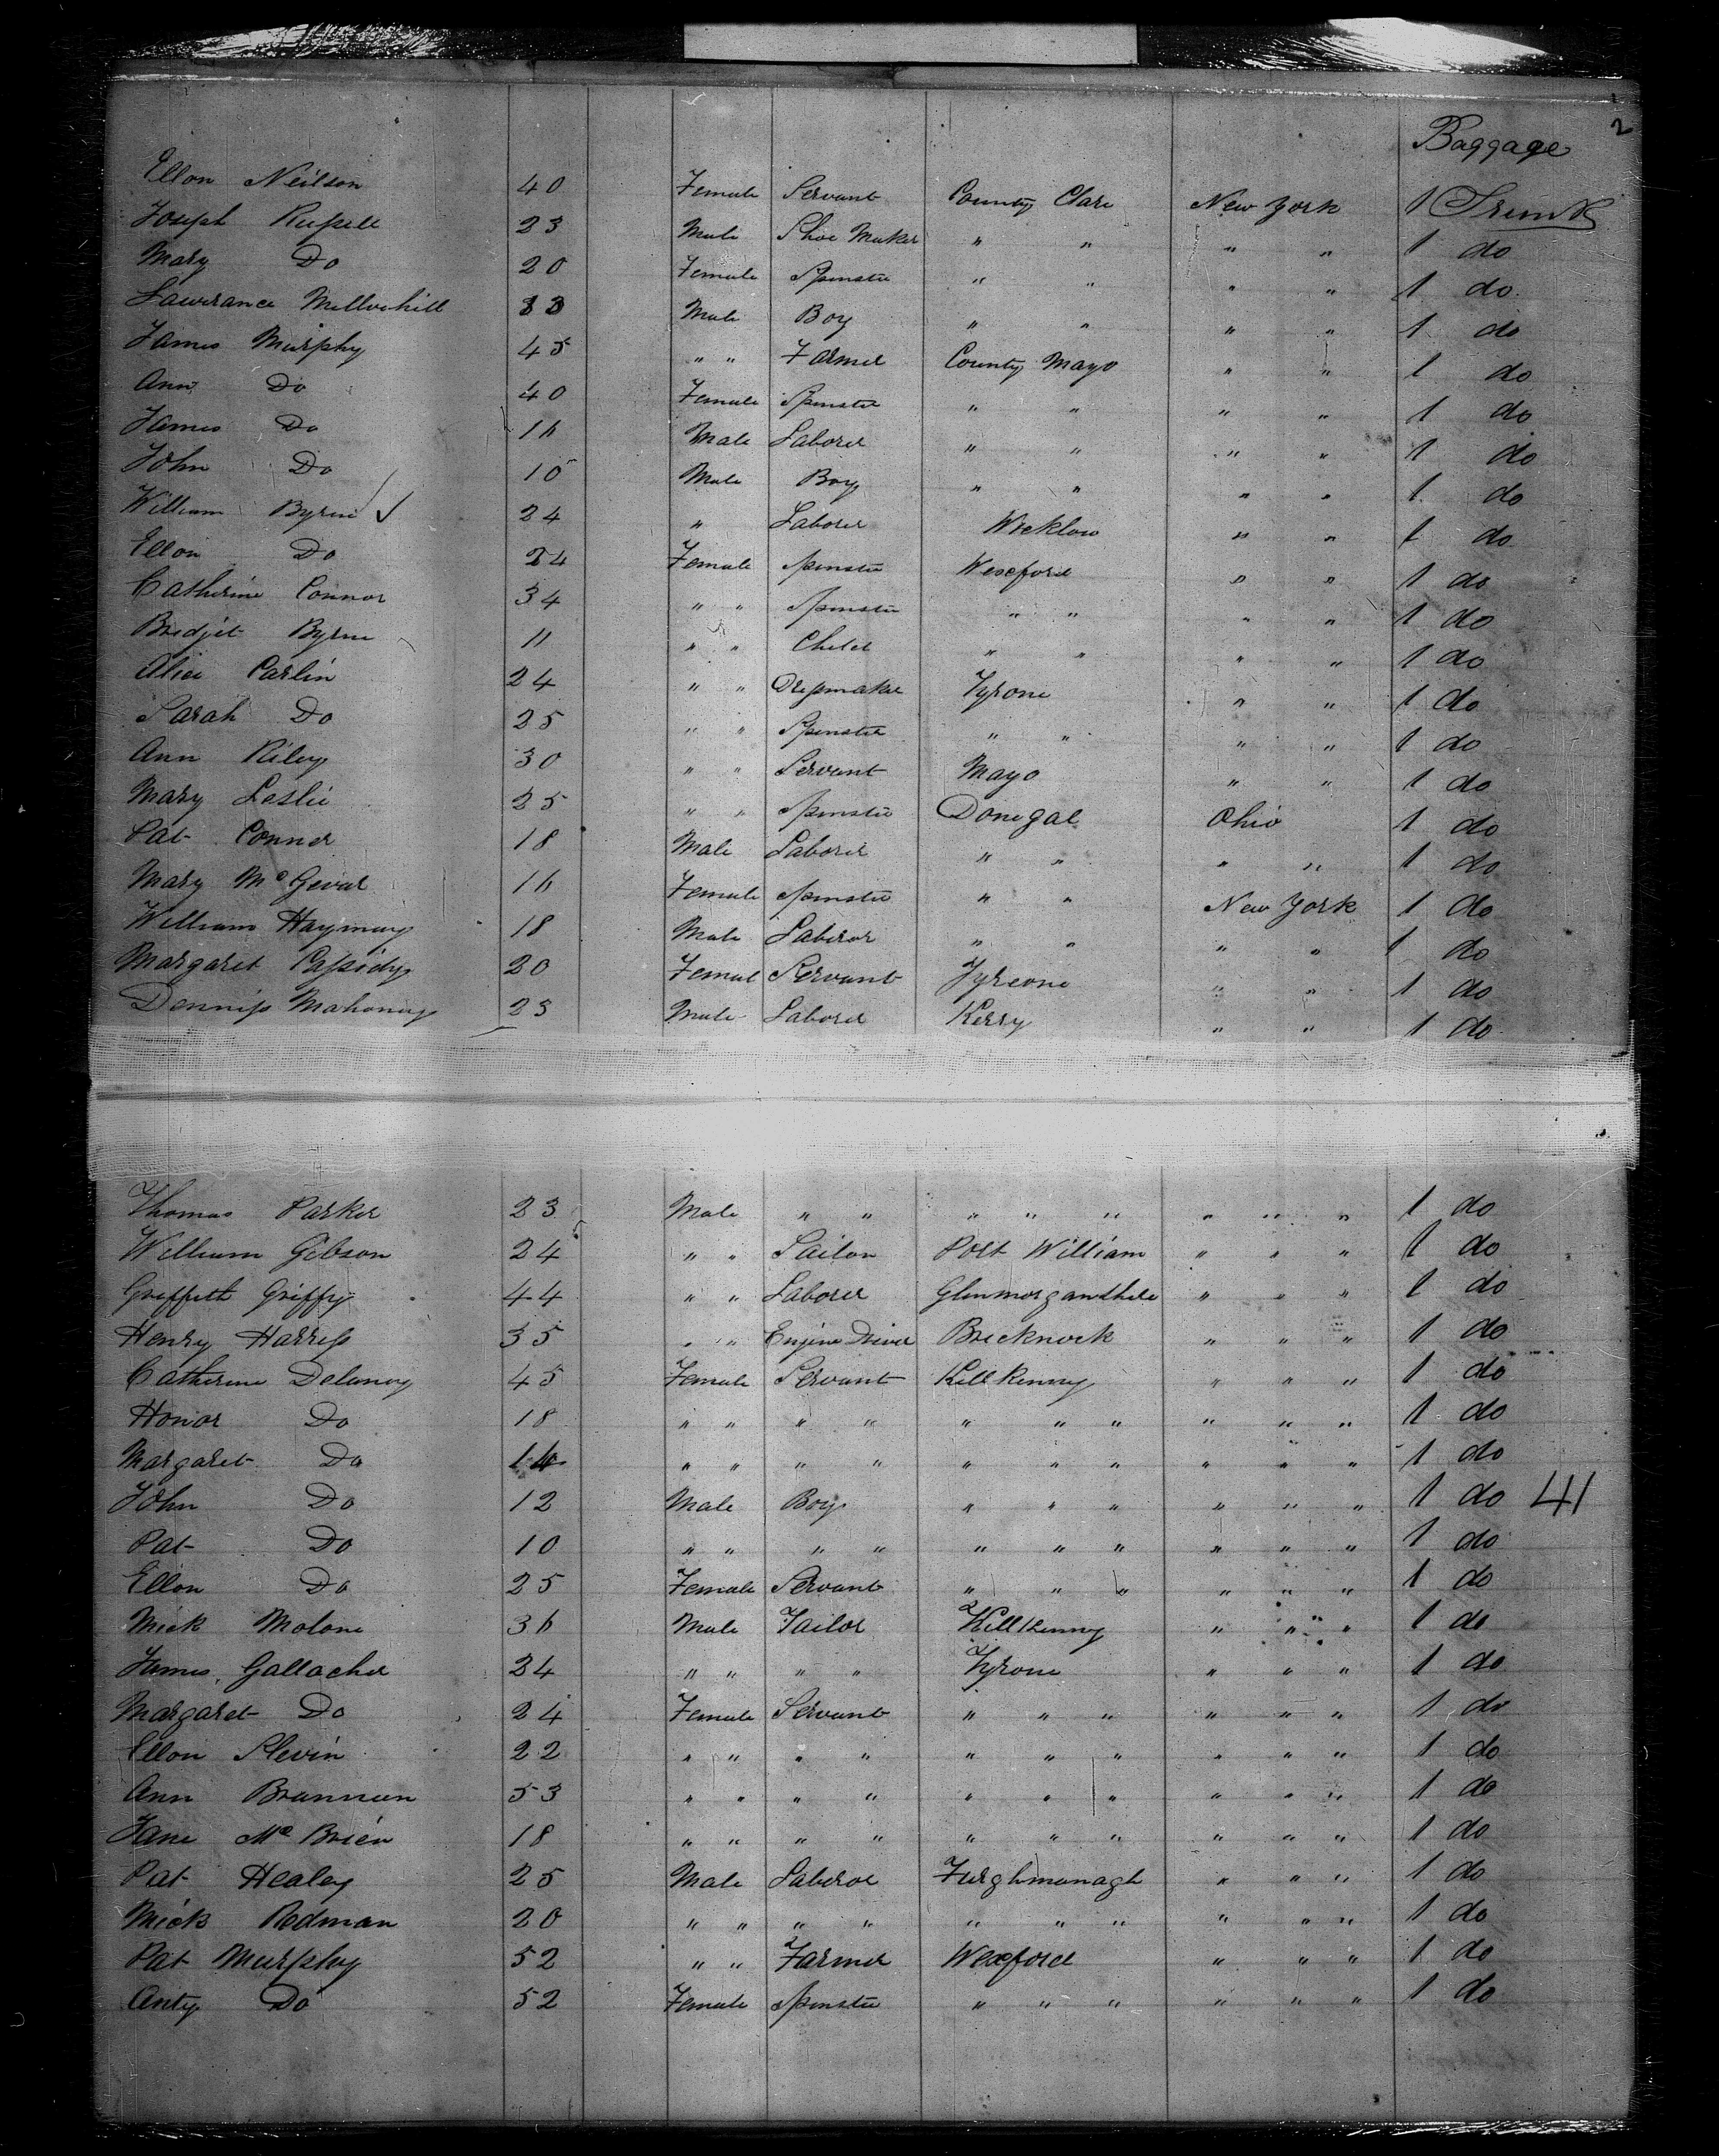 2
Baggage
Ellon Neilson 40 Female Servant County Clare New York 1 Trunk
Joseph Russell 23 Male Shoe Maker " " " " 1 do
Mary Do 20 Female Spinster " " " " 1 do
Lawrance 33 Male Boy " " " " 1 do
James Murphy 45 " " Farmer County Mayo " " 1 do
Ann Do 40 Female Spinster " " " " 1 do
James Do 16 Male Laborer " " " " 1 do
John Do 10 Male Boy " " " " 1 do
William Byrne ✓ 24 " Laborer Wicklow " " 1 do
Ellon Do 24 Female Spinster Wexford " " 1 do
Catherine Connor 34 " " Spinster " " " " 1 do
Bredjet Byrne 11 " " Child " " " " 1 do
Alice Carlin 24 " " Dressmaker Tyrone " " 1 do
Sarah Do 25 " " Spinster " " " " 1 do
Ann Riley 30 " " Servant Mayo " " 1 do
Mary Leslie 25 " " Spinster Donegal Ohio 1 do
Pat Conner 18 Male Laborer " " " " 1 do
Mary Mc 16 Female Spinster " " New York 1 do
William 18 Male Laberor " " " " 1 do
Margaret Cassidy 20 Femal Servant Tyreone " " 1 do
Denniss Mahoney 23 Male Laborer Kerry " " 1 do
Thomas Parker 23 Male " " " " " " " " 1 do
William Gibson 24 " " Sailor Port William " " " 1 do
Griffeth Griffy 44 " " Laborer Glenmorganshire " " " 1 do
Henry Harriss 35 " " Engine Driver Brecknock " " " 1 do
Catherine Delaney 45 Female Servant Killkenny " " " 1 do
Honor Do 18 " " " " " " " " " " 1 do
Margaret Do " " " " " " " " " " 1 do
John Do 12 Male Boy " " " " " " 1 do 41
Pat Do 10 " " " " " " " " " " 1 do
Ellon Do 25 Female Servant " " " " " " 1 do
Mick Molone 36 Male Tailor Killkenny " " " 1 do
James Gallacher 24 " " " " Tyrone " " " 1 do
Margaret Do 24 Female Servant " " " " " " 1 do
Ellon Slevin 22 " " " " " " " " " " 1 do
Ann Brannan 53 " " " " " " " " " " 1 do
Jane Mc Brien 18 " " " " " " " " " " 1 do
Pat Healey 25 Male Laberor Furghmanagh " " " 1 do
Mick Redman 20 " " " " " " " " " " 1 do
Pat Murphy 52 " " Farmer Wexford " " " 1 do
Anty Do 52 Female Spinster " " " " " " 1 do